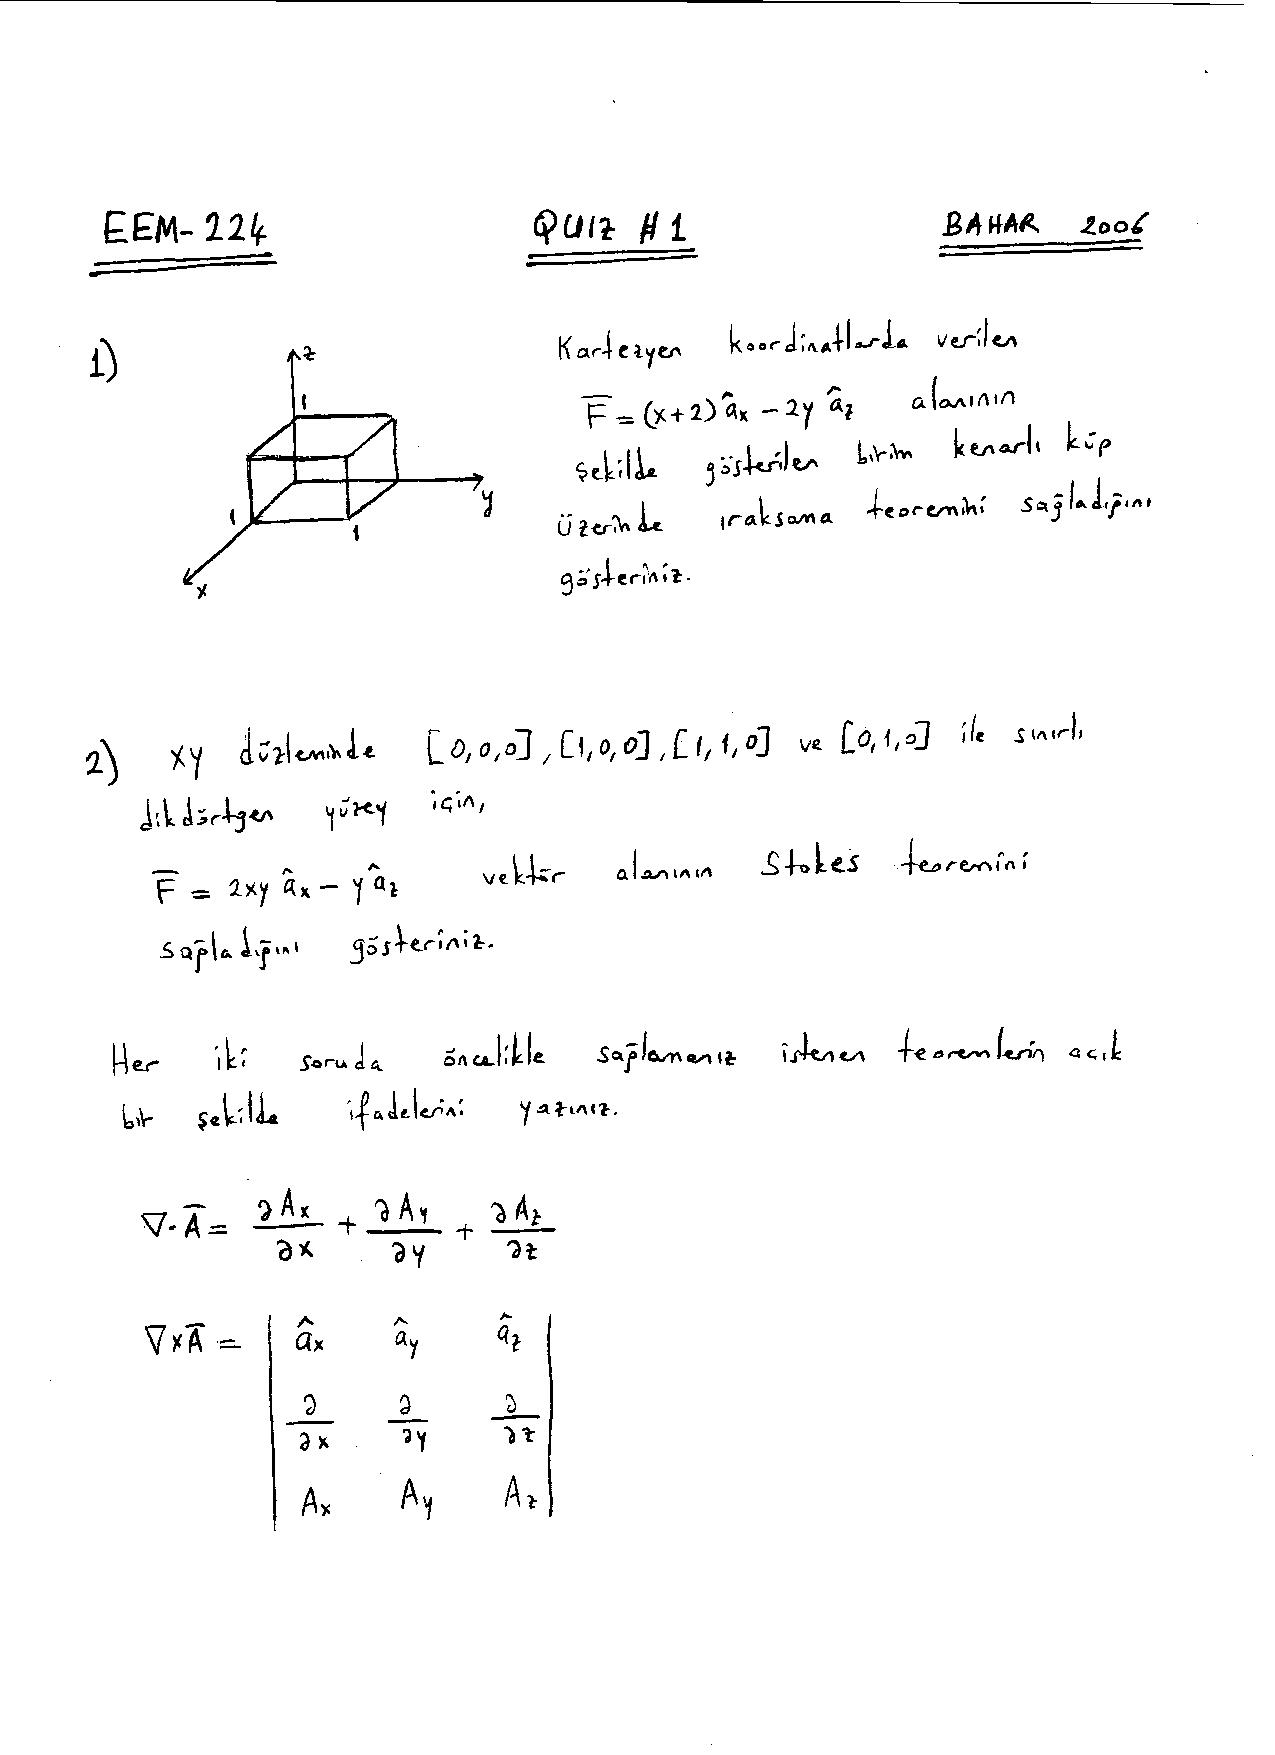 EEM-224 QUIZ #1 BAHAR 2006
1) Kartezyen koordinatlarda verilen
z
1
F̅ = (x+2) âx - 2y âz alanının
şekilde gösterilen birim kenarlı küp
y
1
1
üzerinde ıraksama teoremini sağladığını
x
gösteriniz.
2) xy düzleminde [0,0,0], [1,0,0], [1,1,0] ve [0,1,0] ile sınırlı
dikdörtgen yüzey için,
F̅ = 2xy âx - y âz vektör alanının Stokes teoremini
sağladığını gösteriniz.
Her iki soruda öncelikle sağlamanız istenen teoremlerin açık
bir şekilde ifadelerini yazınız.
∇·A̅ = ∂Ax/∂x + ∂Ay/∂y + ∂Az/∂z
∇×A̅ = | âx ây âz |
| ∂/∂x ∂/∂y ∂/∂z |
| Ax Ay Az |